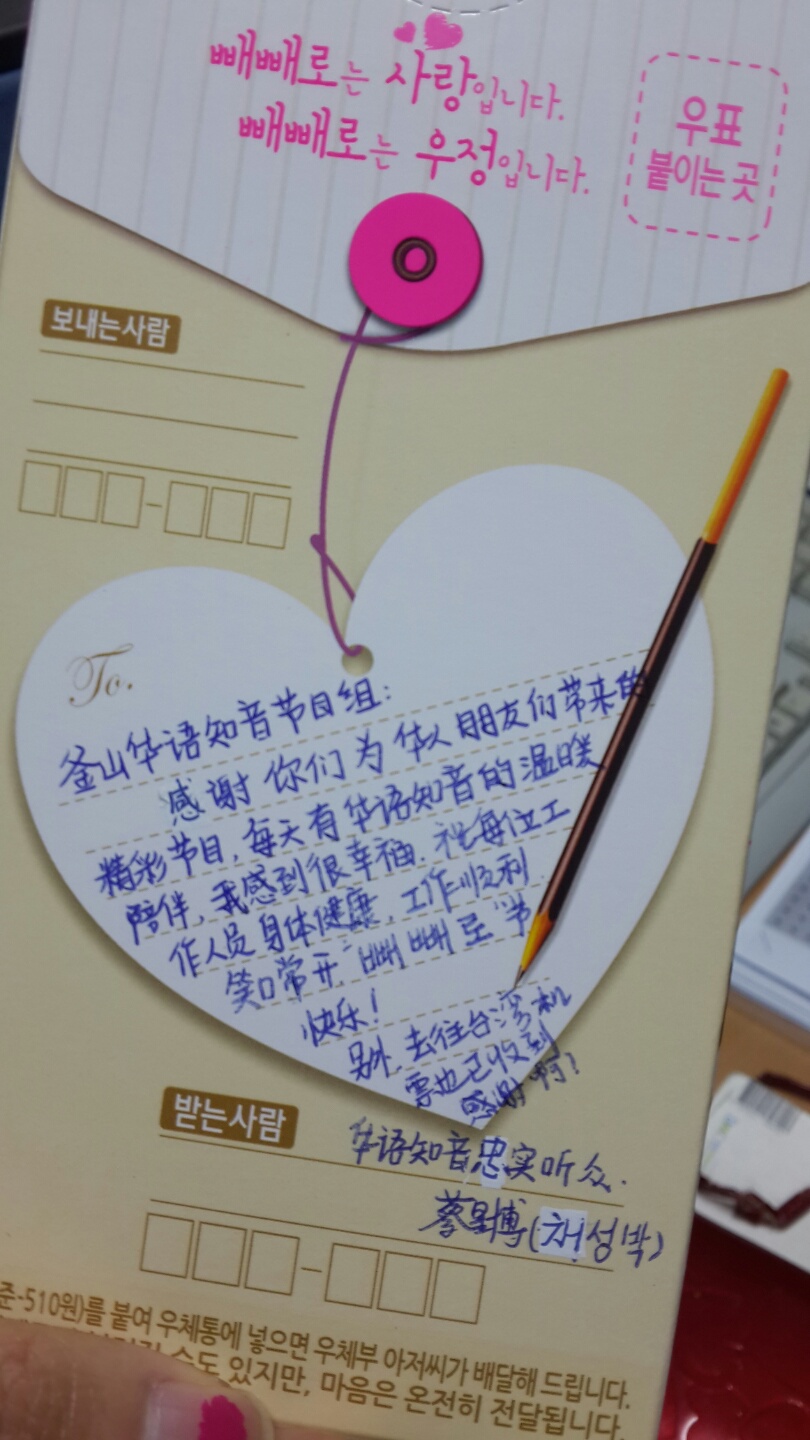 빼빼로는 사랑입니다.
빼빼로는 우정입니다.
우표
붙이는 곳
보내는사람
To.
釜山华语知音节目组:
感谢你们为华人朋友们带来的
精彩节目,每天有华语知音的温暖
陪伴,我感到很幸福.祝每位工
作人员身体健康,工作顺利.
笑口常开,"빼빼로"节
快乐!
另外,去往台湾机
票也已收到
感谢啊!
받는사람
华语知音忠实听众.
蔡星博(채성박)
준-510원)를 붙여 우체통에 넣으면 우체부 아저씨가 배달해 드립니다.
수도 있지만, 마음은 온전히 전달됩니다.